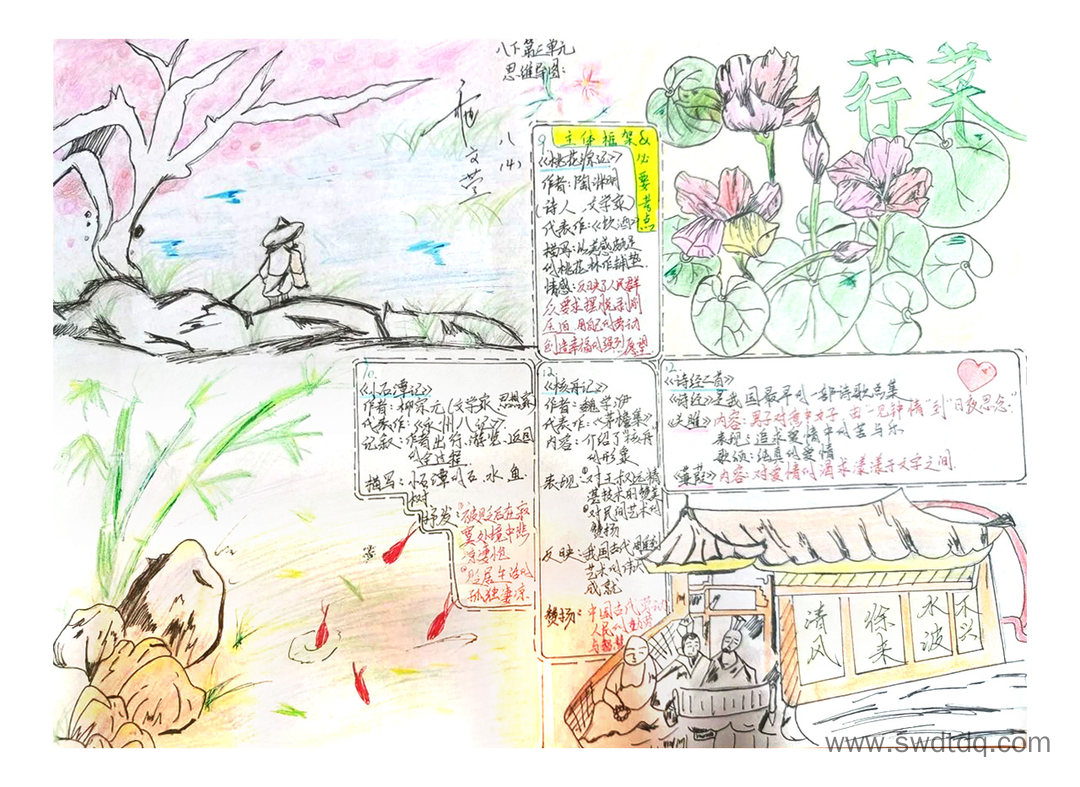 八下第三单元
思维导图:
八
(4)
荇菜
主体框架&必要考点
9.
《桃花源记》
作者:陶渊明
(诗人、文学家)
代表作:《饮酒》
描写:从美感颇是
伏桃花林作铺垫.
情感:反映了人民群
众要求摆脱剥削
压迫,用自己的劳动
创造幸福的强烈愿望
10.
《小石潭记》
作者:柳宗元(文学家 思想家
代表作:《永州八记》
记叙:作者出行、游览、返回
的全过程
描写:小石潭的石、水、鱼、
树
抒发:
寂寞处境中悲
凉凄怆
贬居生活的
孤独凄凉
12.
《核舟记》
作者:魏学洢
代表作:《茅檐集》
内容:介绍了核舟
的形象
表现:①对王叔远精
湛技术的赞美
②对民间艺术的
赞扬
反映:我国古代雕刻
艺术的伟大
成就
赞扬:中国古代劳动
人民的
12.
《诗经二首》
《诗经》是我国最早的一部诗歌总集
《关雎》内容:男子对意中女子,由"一见钟情"到"日夜思念".
表现:追求爱情中的苦与乐
歌颂:纯真的爱情
《蒹葭》内容:对爱情的渴求漾漾于文字之间.
清风
徐来
水波
不兴
www.swdtdq.com